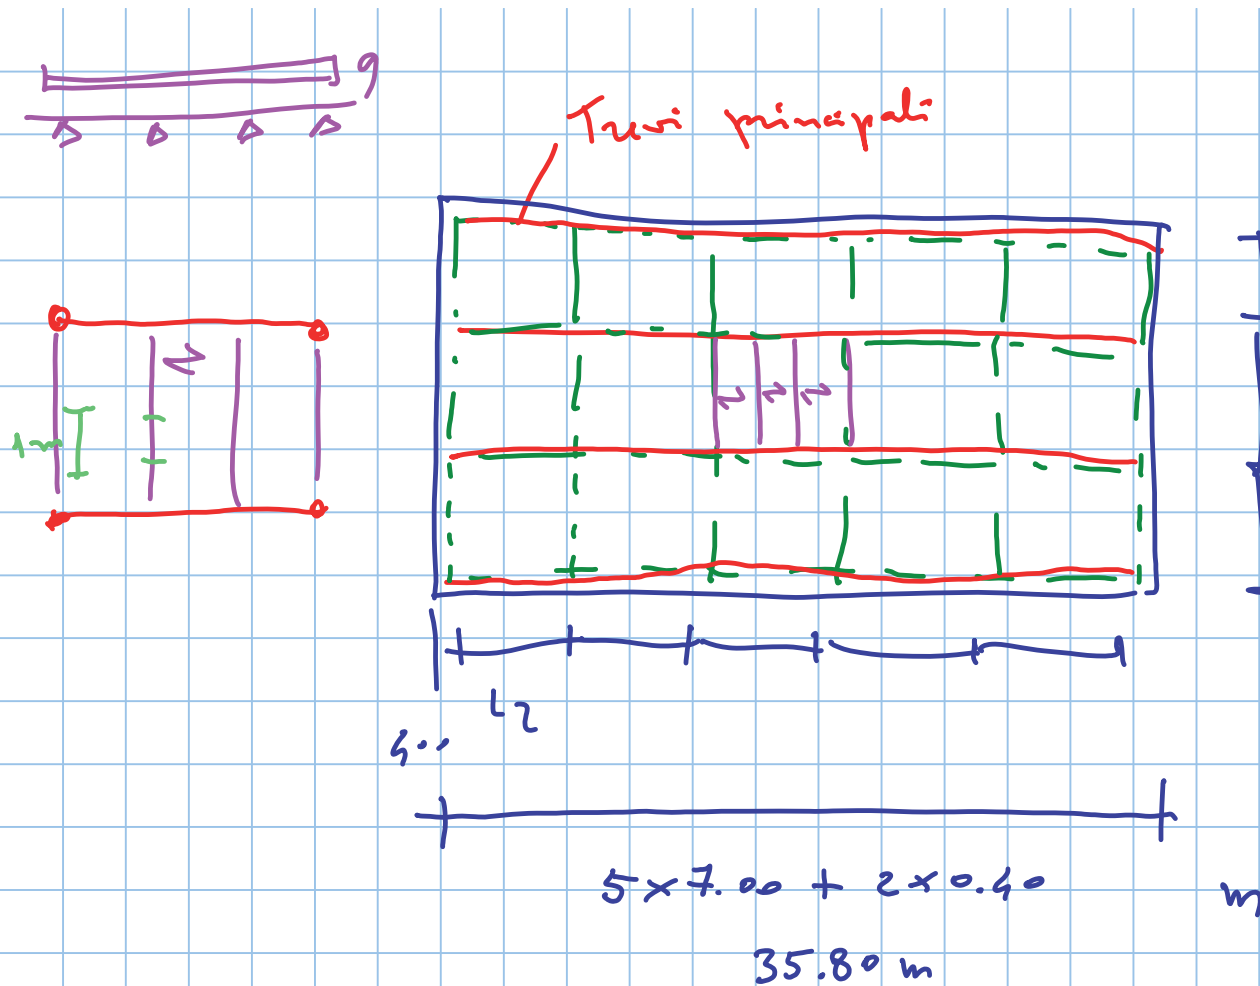 Travi principali
1m
L2
5 x 7.00 + 2 x 0.40
m
35.80 m